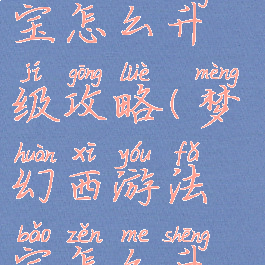 宝怎么升
jí gōng lüè mèng
级攻略(梦
huàn xī yóu fǎ
幻西游法
bǎo zěn me shēng
宝怎么升